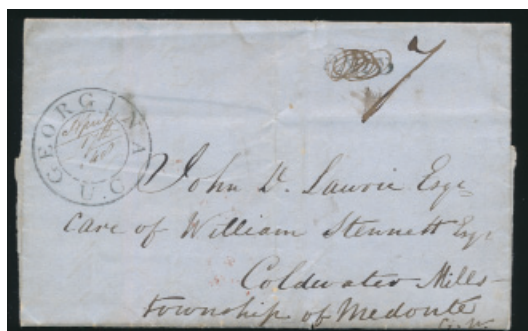 7
GEORGINA
April
U.C
John D. Laurie Esqr
care of William Stennett Esqr
Coldwater Mills
township of Medonte
C.W.